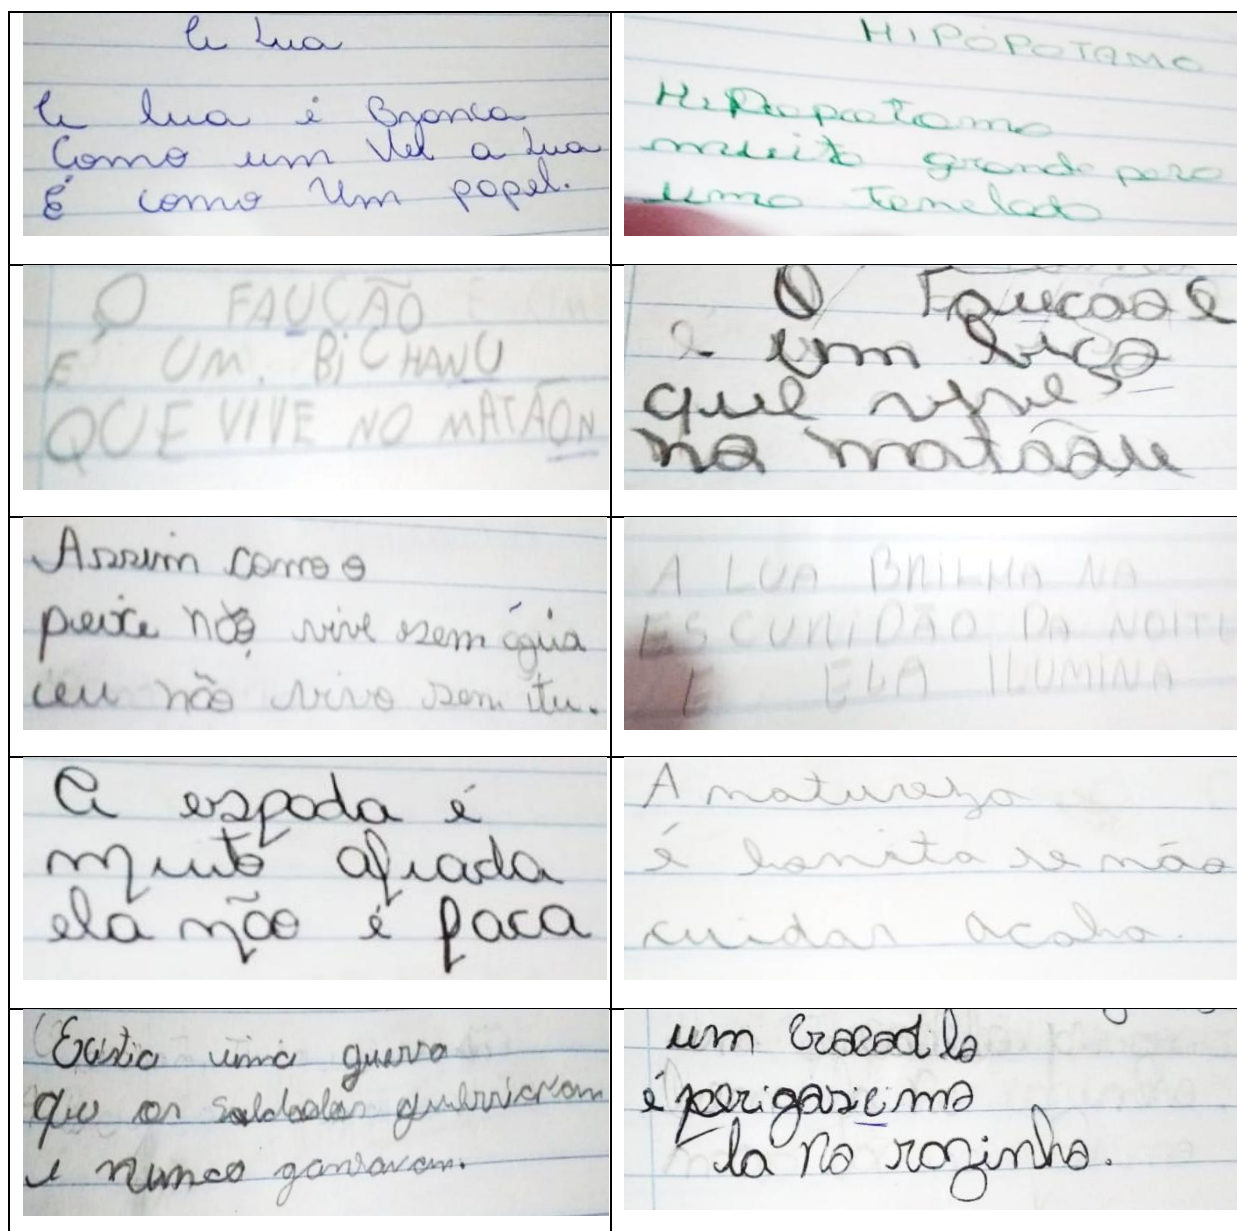 A Lua
A lua é Branca
Como um Vél a Lua
É como Um papel.
HIPOPOTAMO
Hipopotamo
muito grande pesa
uma Tenelada
O FAUCÃO É UM
E UM BICHANU
QUE VIVE NO MATÃON
O Faucão e
e um bico
que vive
no matão
Assim como o
peixe não vive sem água
eu não vivo sem tu.
A LUA BRILHA NA
ESCURIDÃO DA NOITE
E ELA ILUMINA
A espada é
muito afiada
ela não é faca
A natureza
é bonita se não
cuidar acaba.
Existia uma guerra
que os soldados guerriavam
e nunca ganhavam.
um crocodilo
é perigozicimo
la no rozinho.